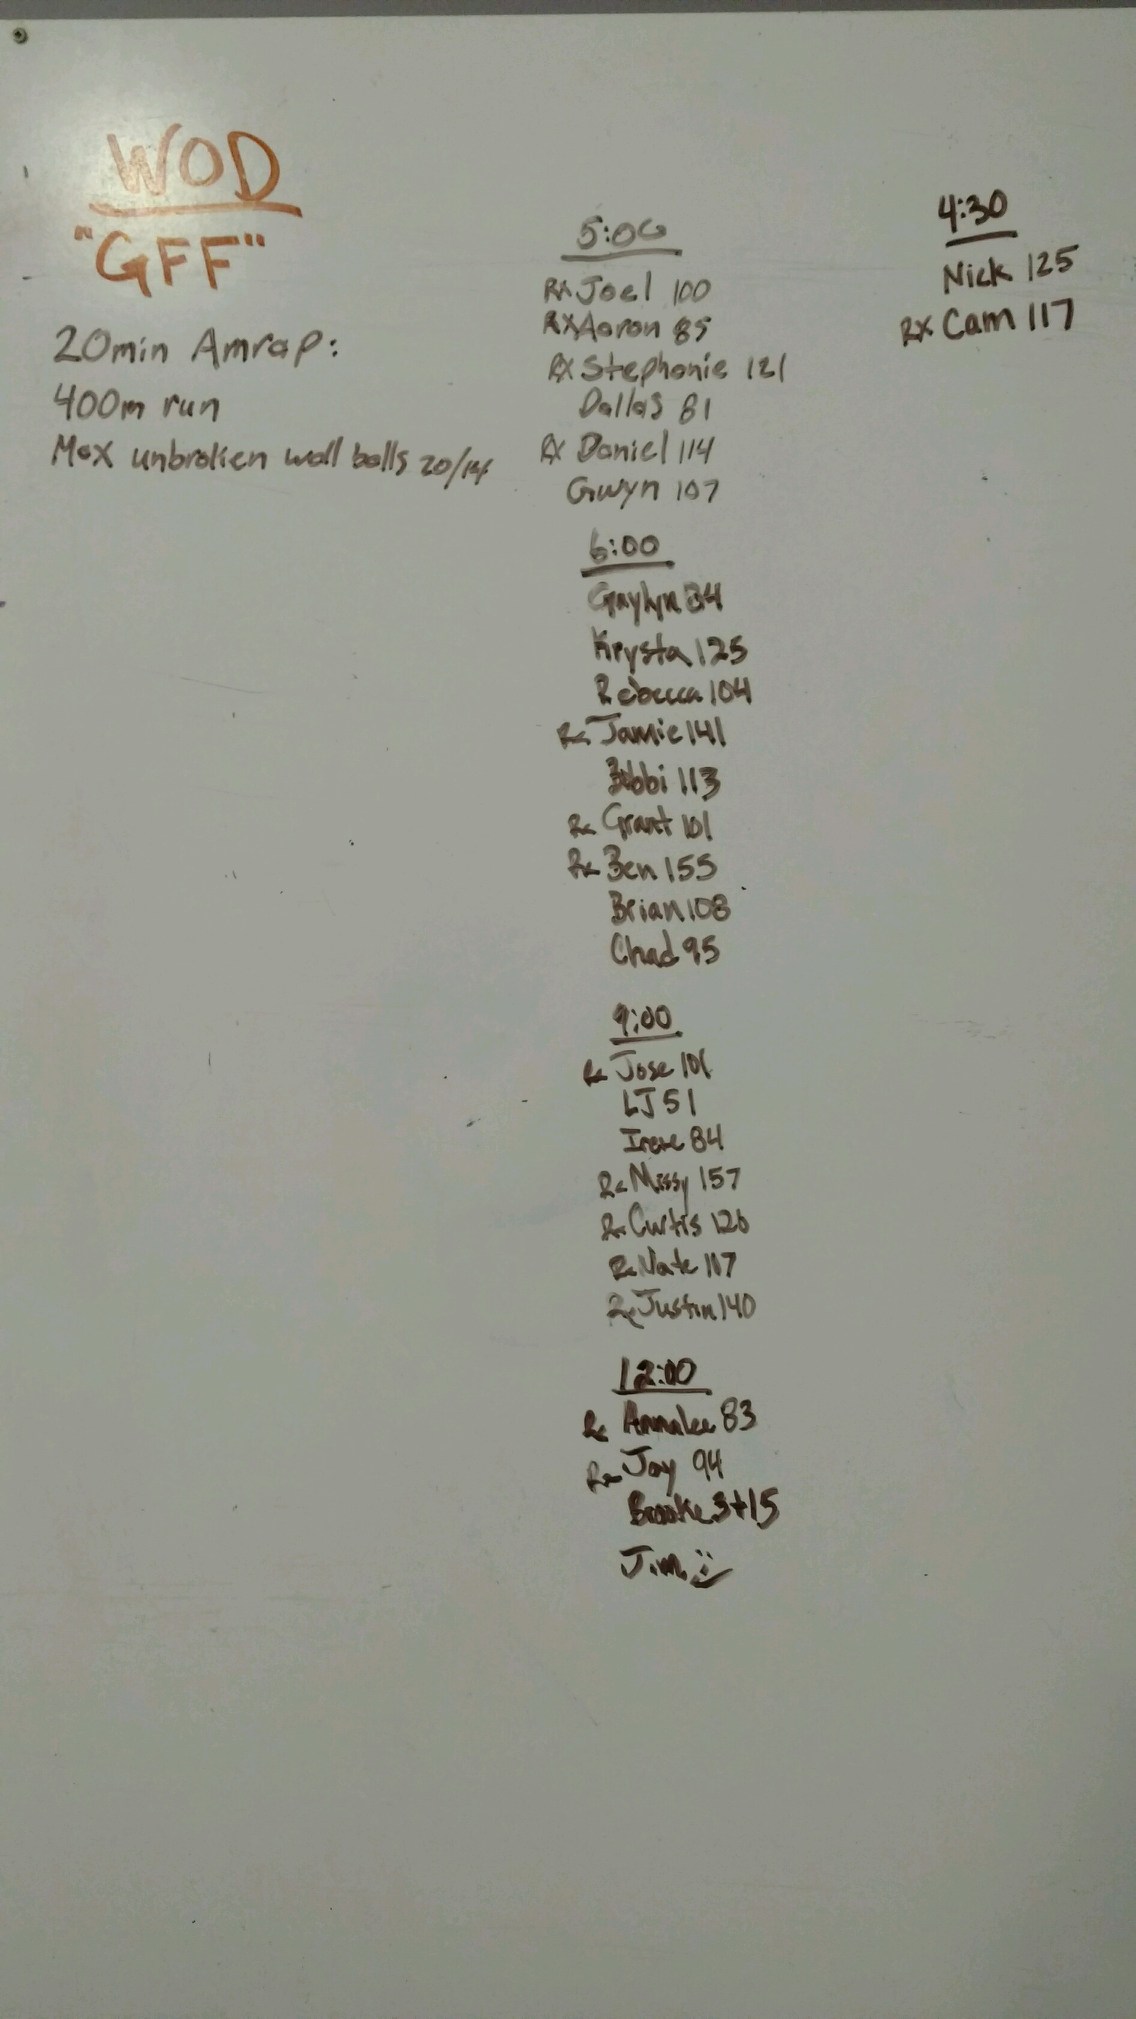 WOD
"GFF"
20min Amrap:
400m run
Max unbroken wall balls 20/14
5:00
RX Joel 100
RX Aaron 85
RX Stephanie 121
Dallas 81
RX Daniel 114
Gwyn 107
6:00
Gaylyn 84
Krysta 125
Rebecca 104
Rx Jamie 141
Bobbi 113
Rx Grant 101
Rx Ben 155
Brian 108
Chad 95
9:00
Rx Jose 101
LJ 51
Irene 84
Rx Missy 157
Rx Curtis 126
Rx Nate 117
Rx Justin 140
12:00
Rx Annalee 83
Rx Jay 94
Brooke 3+15
Jim :)
4:30
Nick 125
RX Cam 117